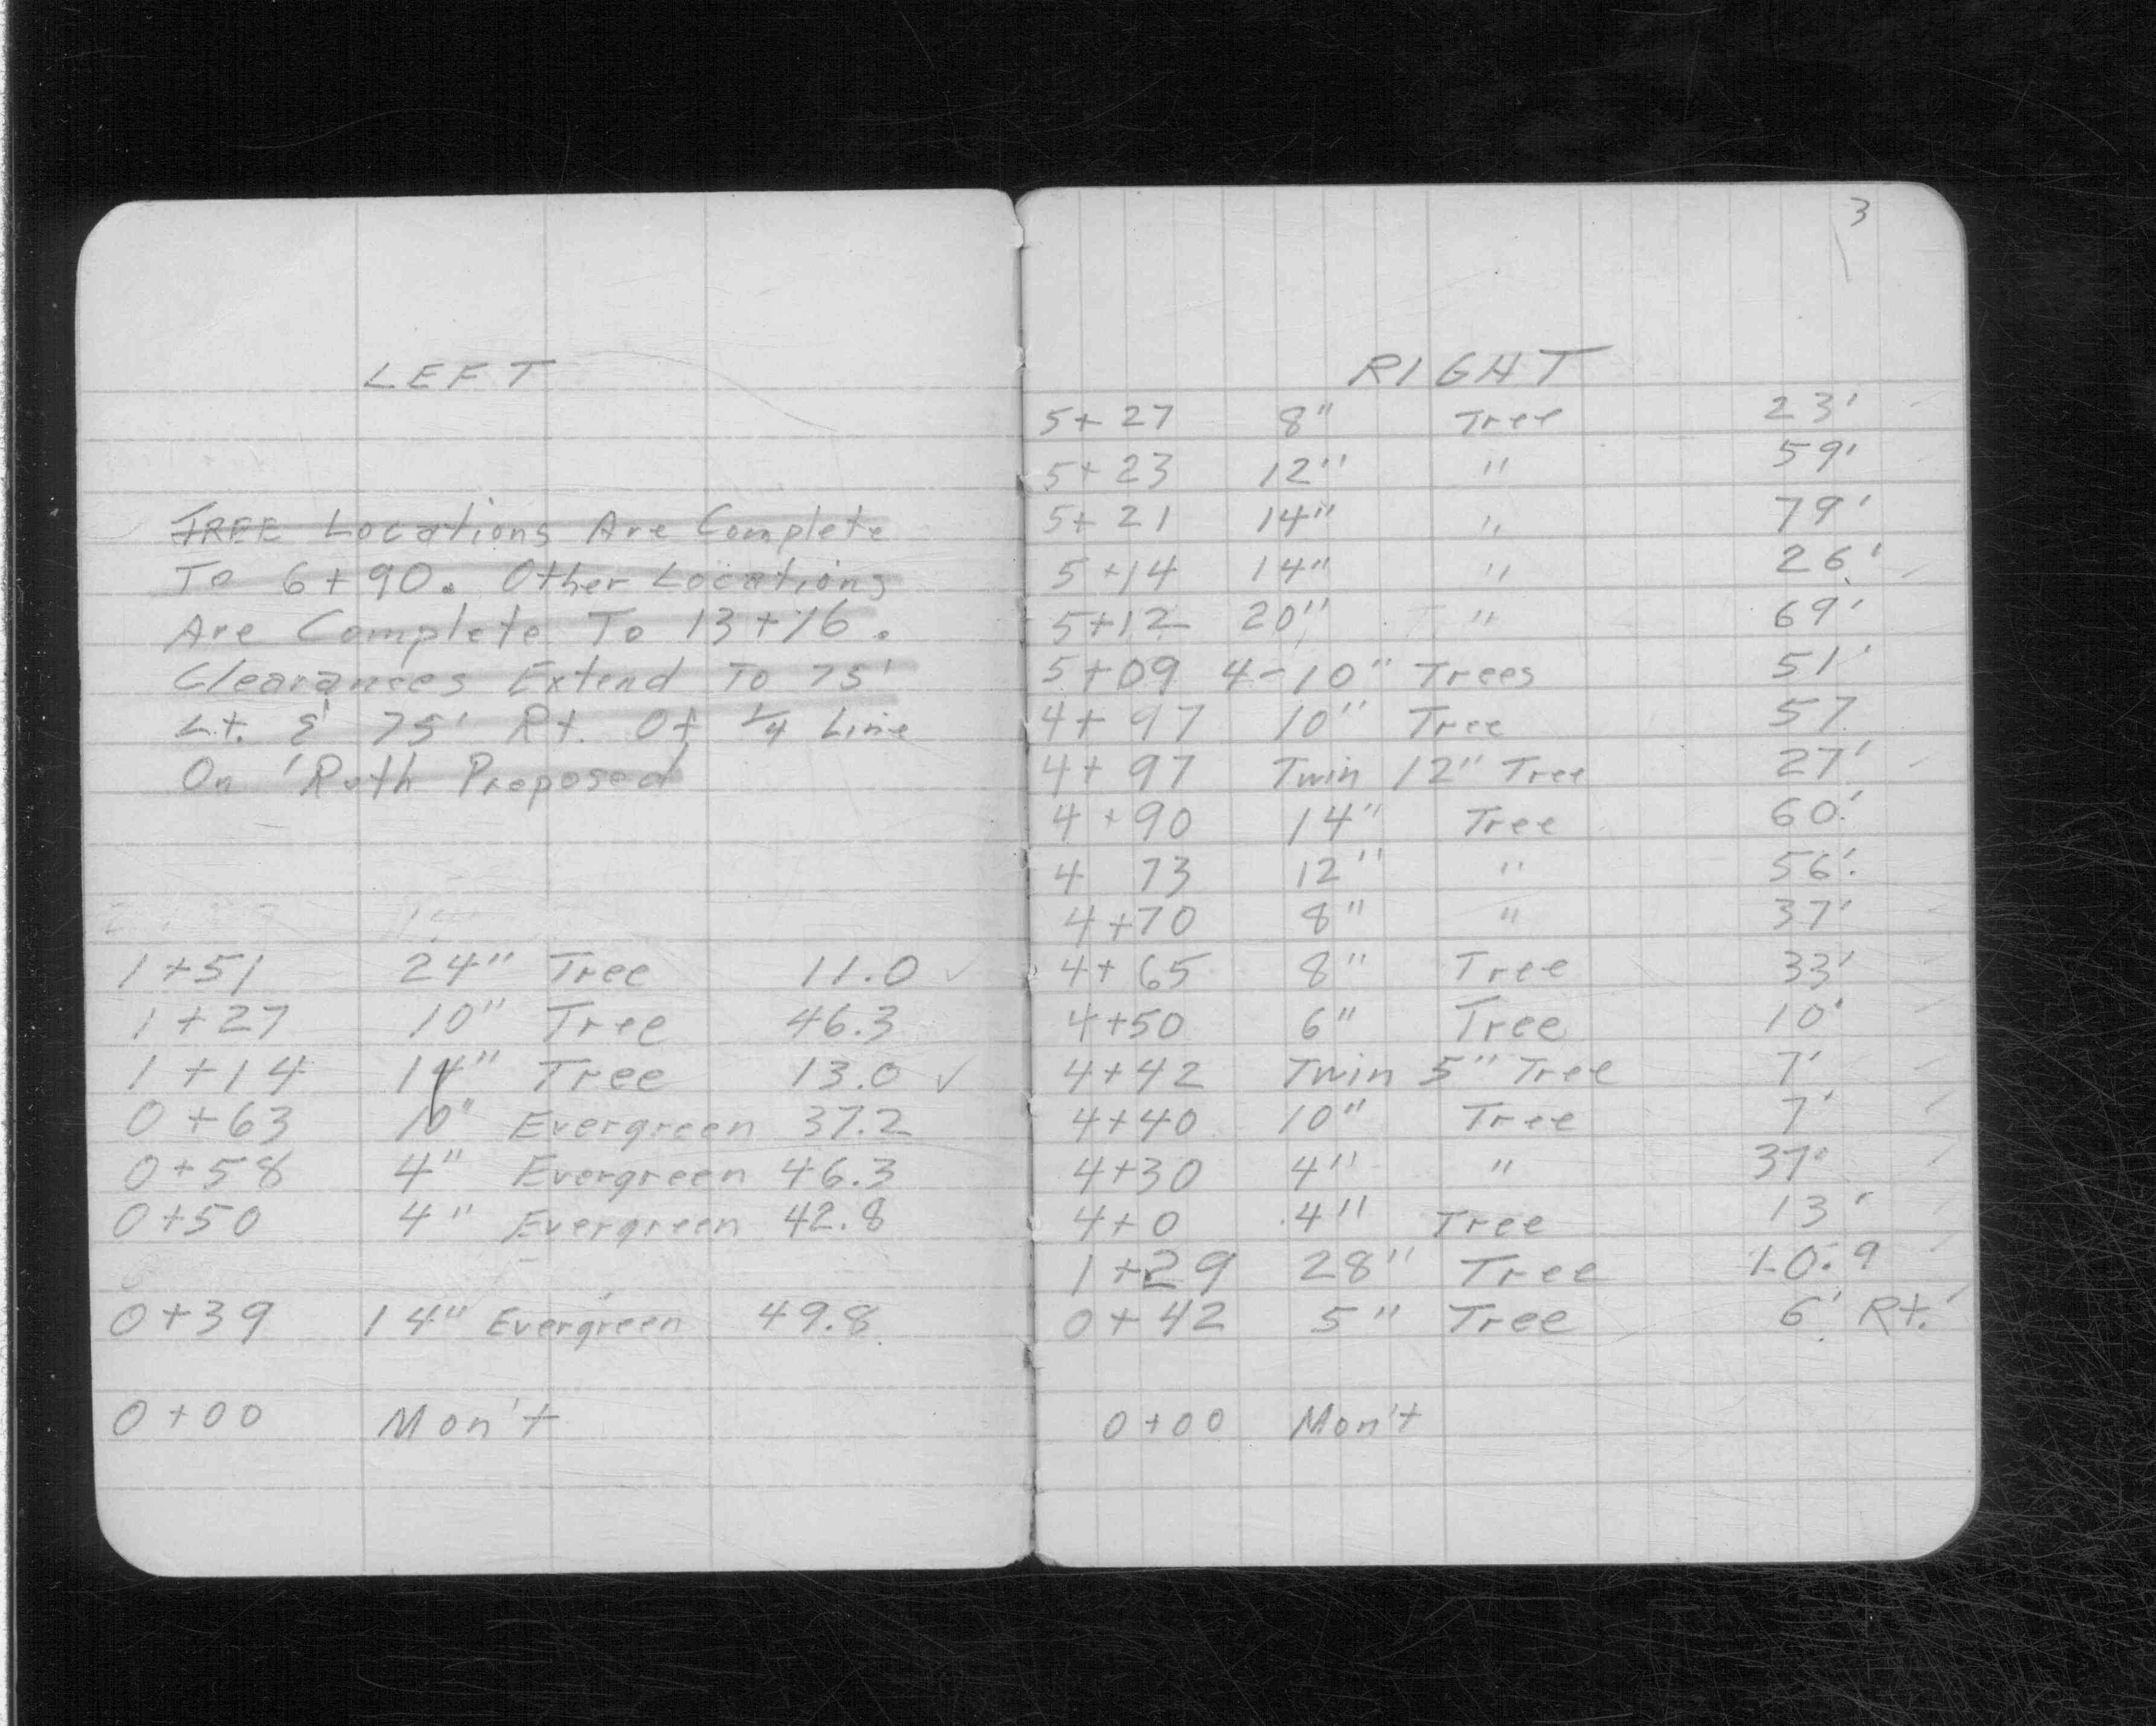 LEFT
TREE Locations Are Complete
To 6+90. Other Locations
Are Complete To 13+16.
Clearances Extend To 75'
Lt. & 75' Rt. Of 1/4 Line
On Proposed
1+51 24" Tree 11.0 ✓
1+27 10" Tree 46.3
1+14 14" Tree 13.0 ✓
0+63 10" Evergreen 37.2
0+58 4" Evergreen 46.3
0+50 4" Evergreen 42.8
0+39 14" Evergreen 49.8
0+00 Mon't
3
RIGHT
5+27 8" Tree 23'
5+23 12" " 59'
5+21 14" " 79'
5+14 14" " 26'
5+12 20" " 69'
5+09 4-10" Trees 51'
4+97 10" Tree 57
4+97 Twin 12" Tree 27'
4+90 14" Tree 60'
4 73 12" " 56'
4+70 8" " 37'
4+65 8" Tree 33'
4+50 6" Tree 10'
4+42 Twin 5" Tree 7'
4+40 10" Tree 7'
4+30 4" " 37'
4+0 4" Tree 13'
1+29 28" Tree 10.9
0+42 5" Tree 6' Rt.
0+00 Mon't